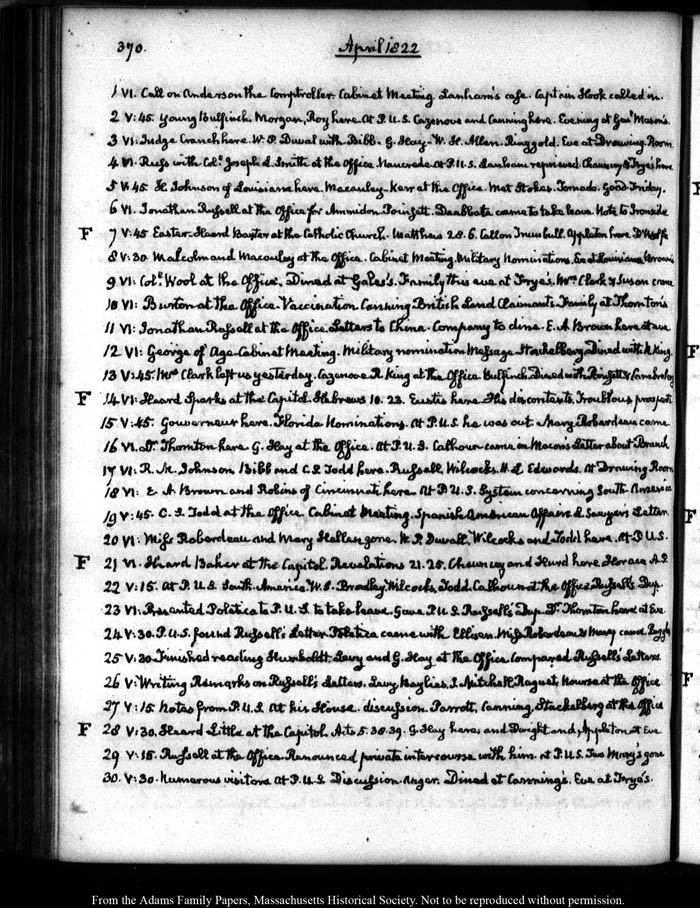 370.
April 1822
1 VI. Call on Anderson the Comptroller. Cabinet Meeting Lanham's case. Captain Hook called in.
2 V:45. Young Bulfinch Morgan, Roy here At P.U.S. Cazenove and Canning here. Evening at Genl Mason's.
3 VI: Judge Cranch here. W. P. Duval with Bibb. G. Hay. W. H. Allen. Ringgold. Eve at Drawing Room
4 VI. Rugs with Coll. Joseph L. Smith at the Office at P.U.S. Lanham reprieved. Chauncey & Frye's here
5 V:45 H. Johnson of Louisiana here. Macauley. Kerr at the Office. Met Stokes. Tornado. Good Friday.
6 VI. Jonathan Russell at the Office for Ammidon Poinsett. Deabbate came to take leave. Note to Ironside
F 7 V:45 Easter. Heard Baxter at the Catholic Church. Matthew 28.6. Call on Trumbull. Appleton here Dr
8 V:30 Malcom and Macauley at the Office. Cabinet Meeting. Military Nominations. Eve at Louisiana Brown's
9 VI: Coll. Wool at the Office. Dined at Gales's. Family this eve at Frye's. Mrs Clark & Susan came
10 VI: Burton at the Office. Vaccination Canning British Land Claimants. Family at Thornton's
11 VI: Jonathan Russell at the Office. Letters to China. Company to dine. E. A Brown here at eve
12 VI: George of Age. Cabinet Meeting. Military nomination Message Stackelberg Dined with R King
13 V:45. Mrs Clark left us yesterday. Cazenove R King at the Office Bulfinch. Dined with Poinsett & Cambreleng
F 14 VI: Heard Sparks at the Capitol. Hebrews 10.23. Eustis here. His discontents. Troublous prospects
15 V:45. Gouverneur here. Florida Nominations. At P.U.S. he was out Mary Roberdeau came
16 VI. Dr. Thornton here G. Hay at the Office. At P.U.S. Calhoun came in Macon's Letter about Branch
17 VI: R. M. Johnson Bibb and C. S. Todd here. Russell Wilcocks. H. L Edwards. At Drawing Room
18 VI: E. A Brown and Robins of Cincinnati here At P.U.S. System concerning South America
19 V:45. C. S. Todd at the Office. Cabinet Meeting. Spanish American Affairs & Sawyer's Letter.
20 VI: Miss Roberdeau and Mary Hellen gone. W. P. Duvall, Wilcocks and Todd here. At P.U.S.
F 21 VI. Heard Baker at the Capitol. Revelations 21.25. Chauncey and Hurd here Horace A.P.
22 V:15. At P.U.S. South America W. C. Bradley, Wilcocks, Todd. Calhoun at the Office Russell's Dup.
23 VI: Presented Politica to P.U.S. to take leave. Gave P.U.S. Russell's Dup. Dr Thornton here at Eve
24 V:30. P.U.S. found Russell's Letter. Politica came with Ellisen. Miss Roberdeau & Mary came
25 V:30 Finished reading Humboldt. Levy and G. Hay at the Office. Compared Russell's Letters
26 V: Writing Remarks on Russell's Letters. Levy, Baylies, S. Mitchell, Raguet, Nourse at the Office
27 V:15 Notes from P.U.S. At his House. discussion. Parrott, Canning, Stackelberg at the Office
F 28 V:30. Heard Little at the Capitol. Acts 5.38.39. G. Hay here and Dwight and Appleton at Eve
29 V:15. Russell at the Office. Renounced private intercourse with him. At P.U.S. Two Mary's gone
30. V:30. Numerous visitors At P.U.S Discussion. Anger. Dined at Canning's. Eve at Frye's.
F
F
F
F
From the Adams Family Papers, Massachusetts Historical Society. Not to be reproduced without permission.